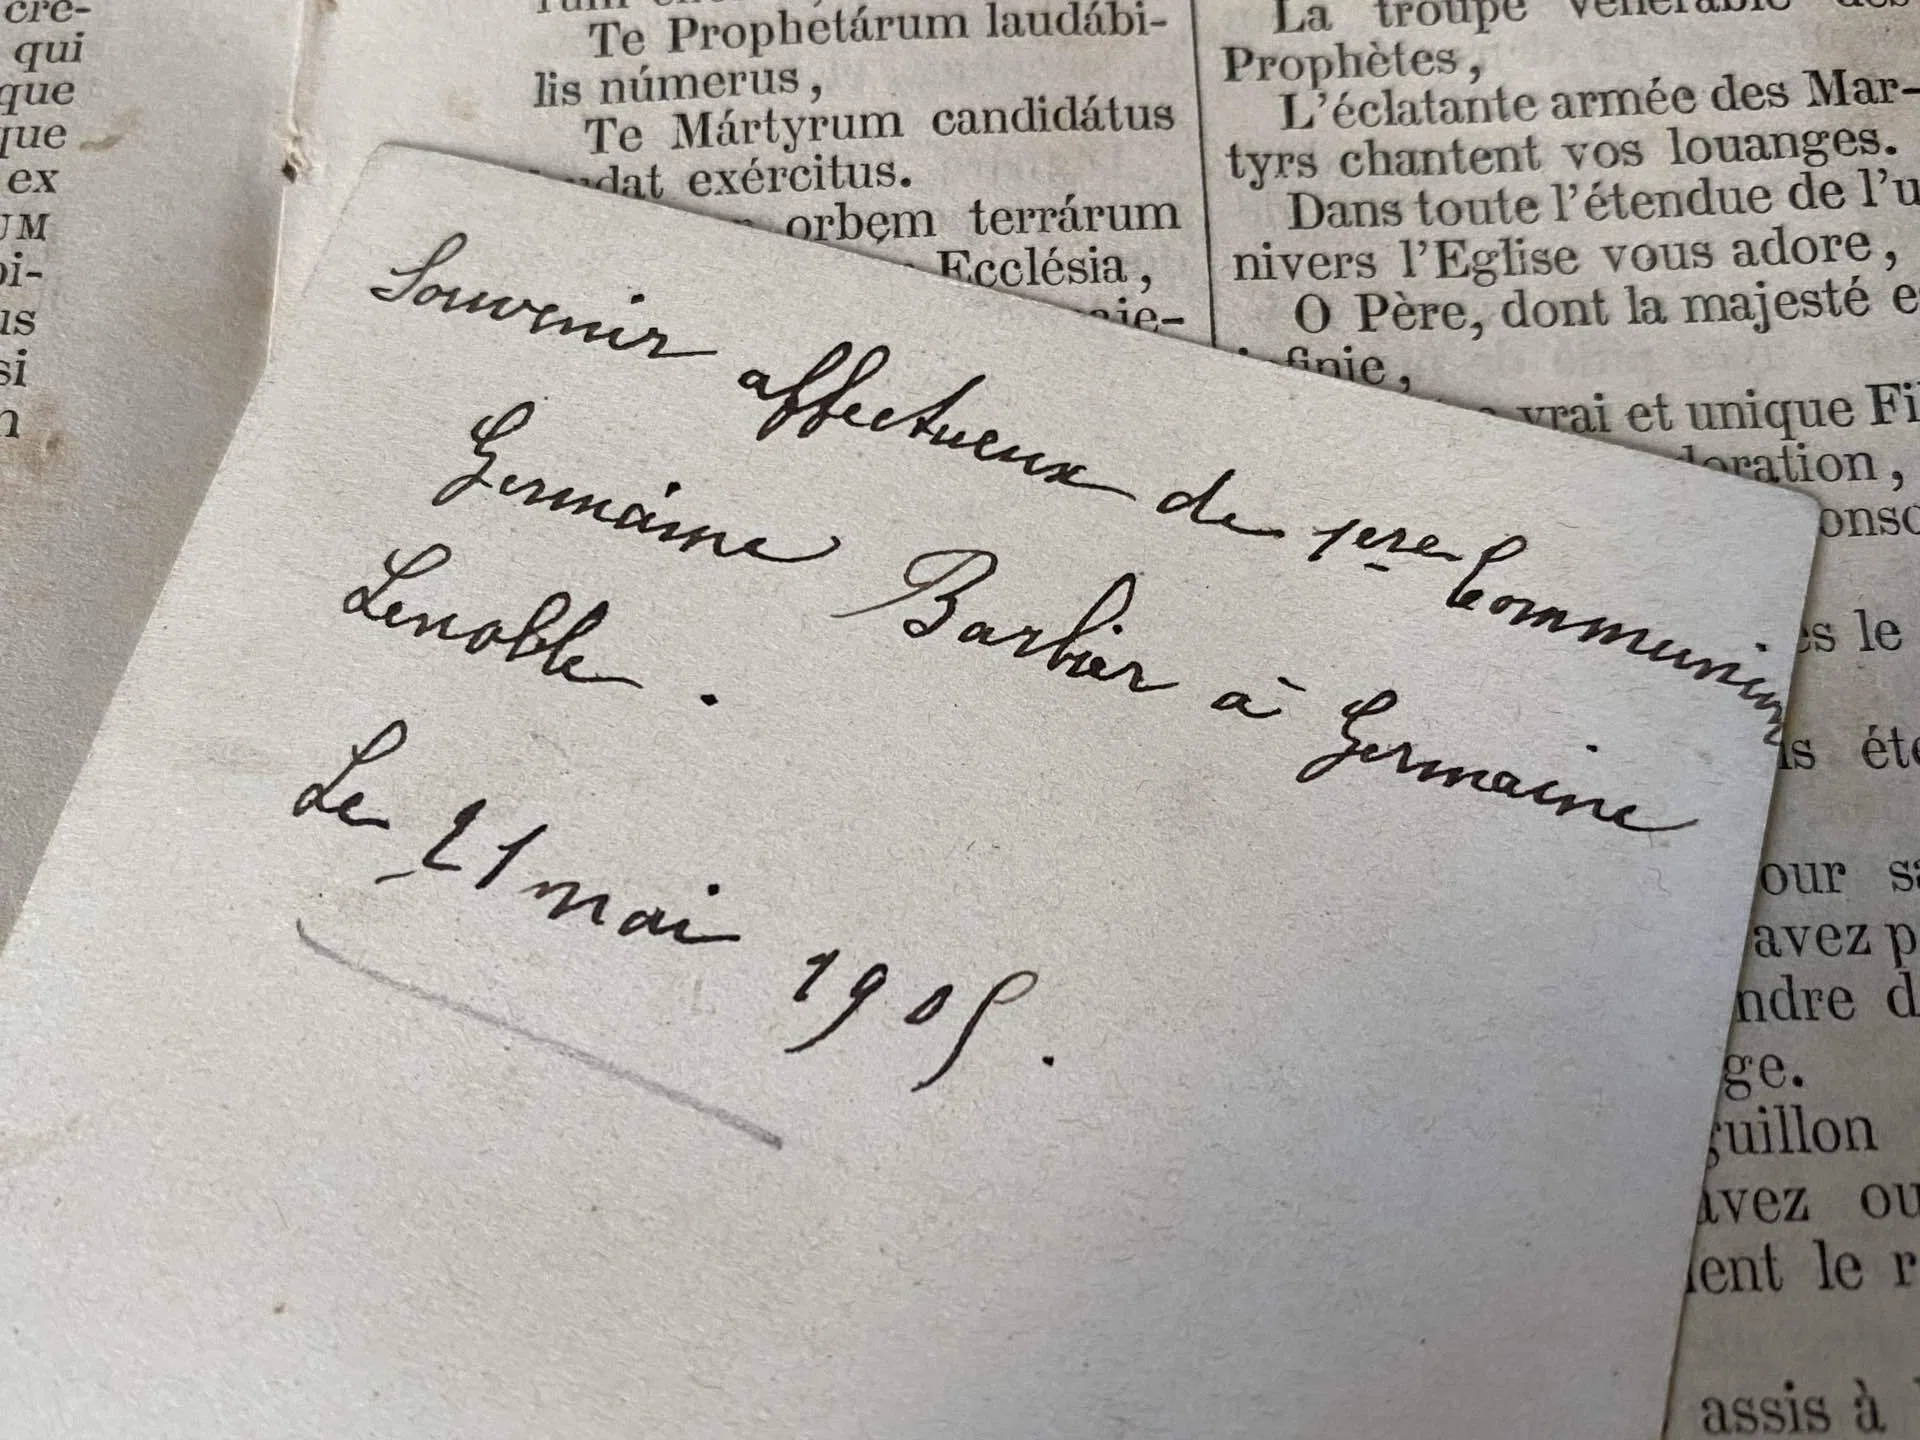 cre-
qui
que
que
ex
UM
bi-
us
si
Te Prophetárum laudábi-
lis númerus,
Te Mártyrum candidátus
exércitus.
orbem terrárum
Ecclésia,
La troupe vénérable des
Prophètes,
L'éclatante armée des Mar-
tyrs chantent vos louanges.
Dans toute l'étendue de l'u
nivers l'Eglise vous adore,
O Père, dont la majesté e
infinie,
vrai et unique Fi
oration,
onso
s le
is éte
our sa
avez p
ndre d
ge.
guillon
avez ou
ent le r
assis à
Souvenir affectueux de 1ère Communion
Germaine Barbier à Germaine
Lenoble.
Le 21 mai 1905.